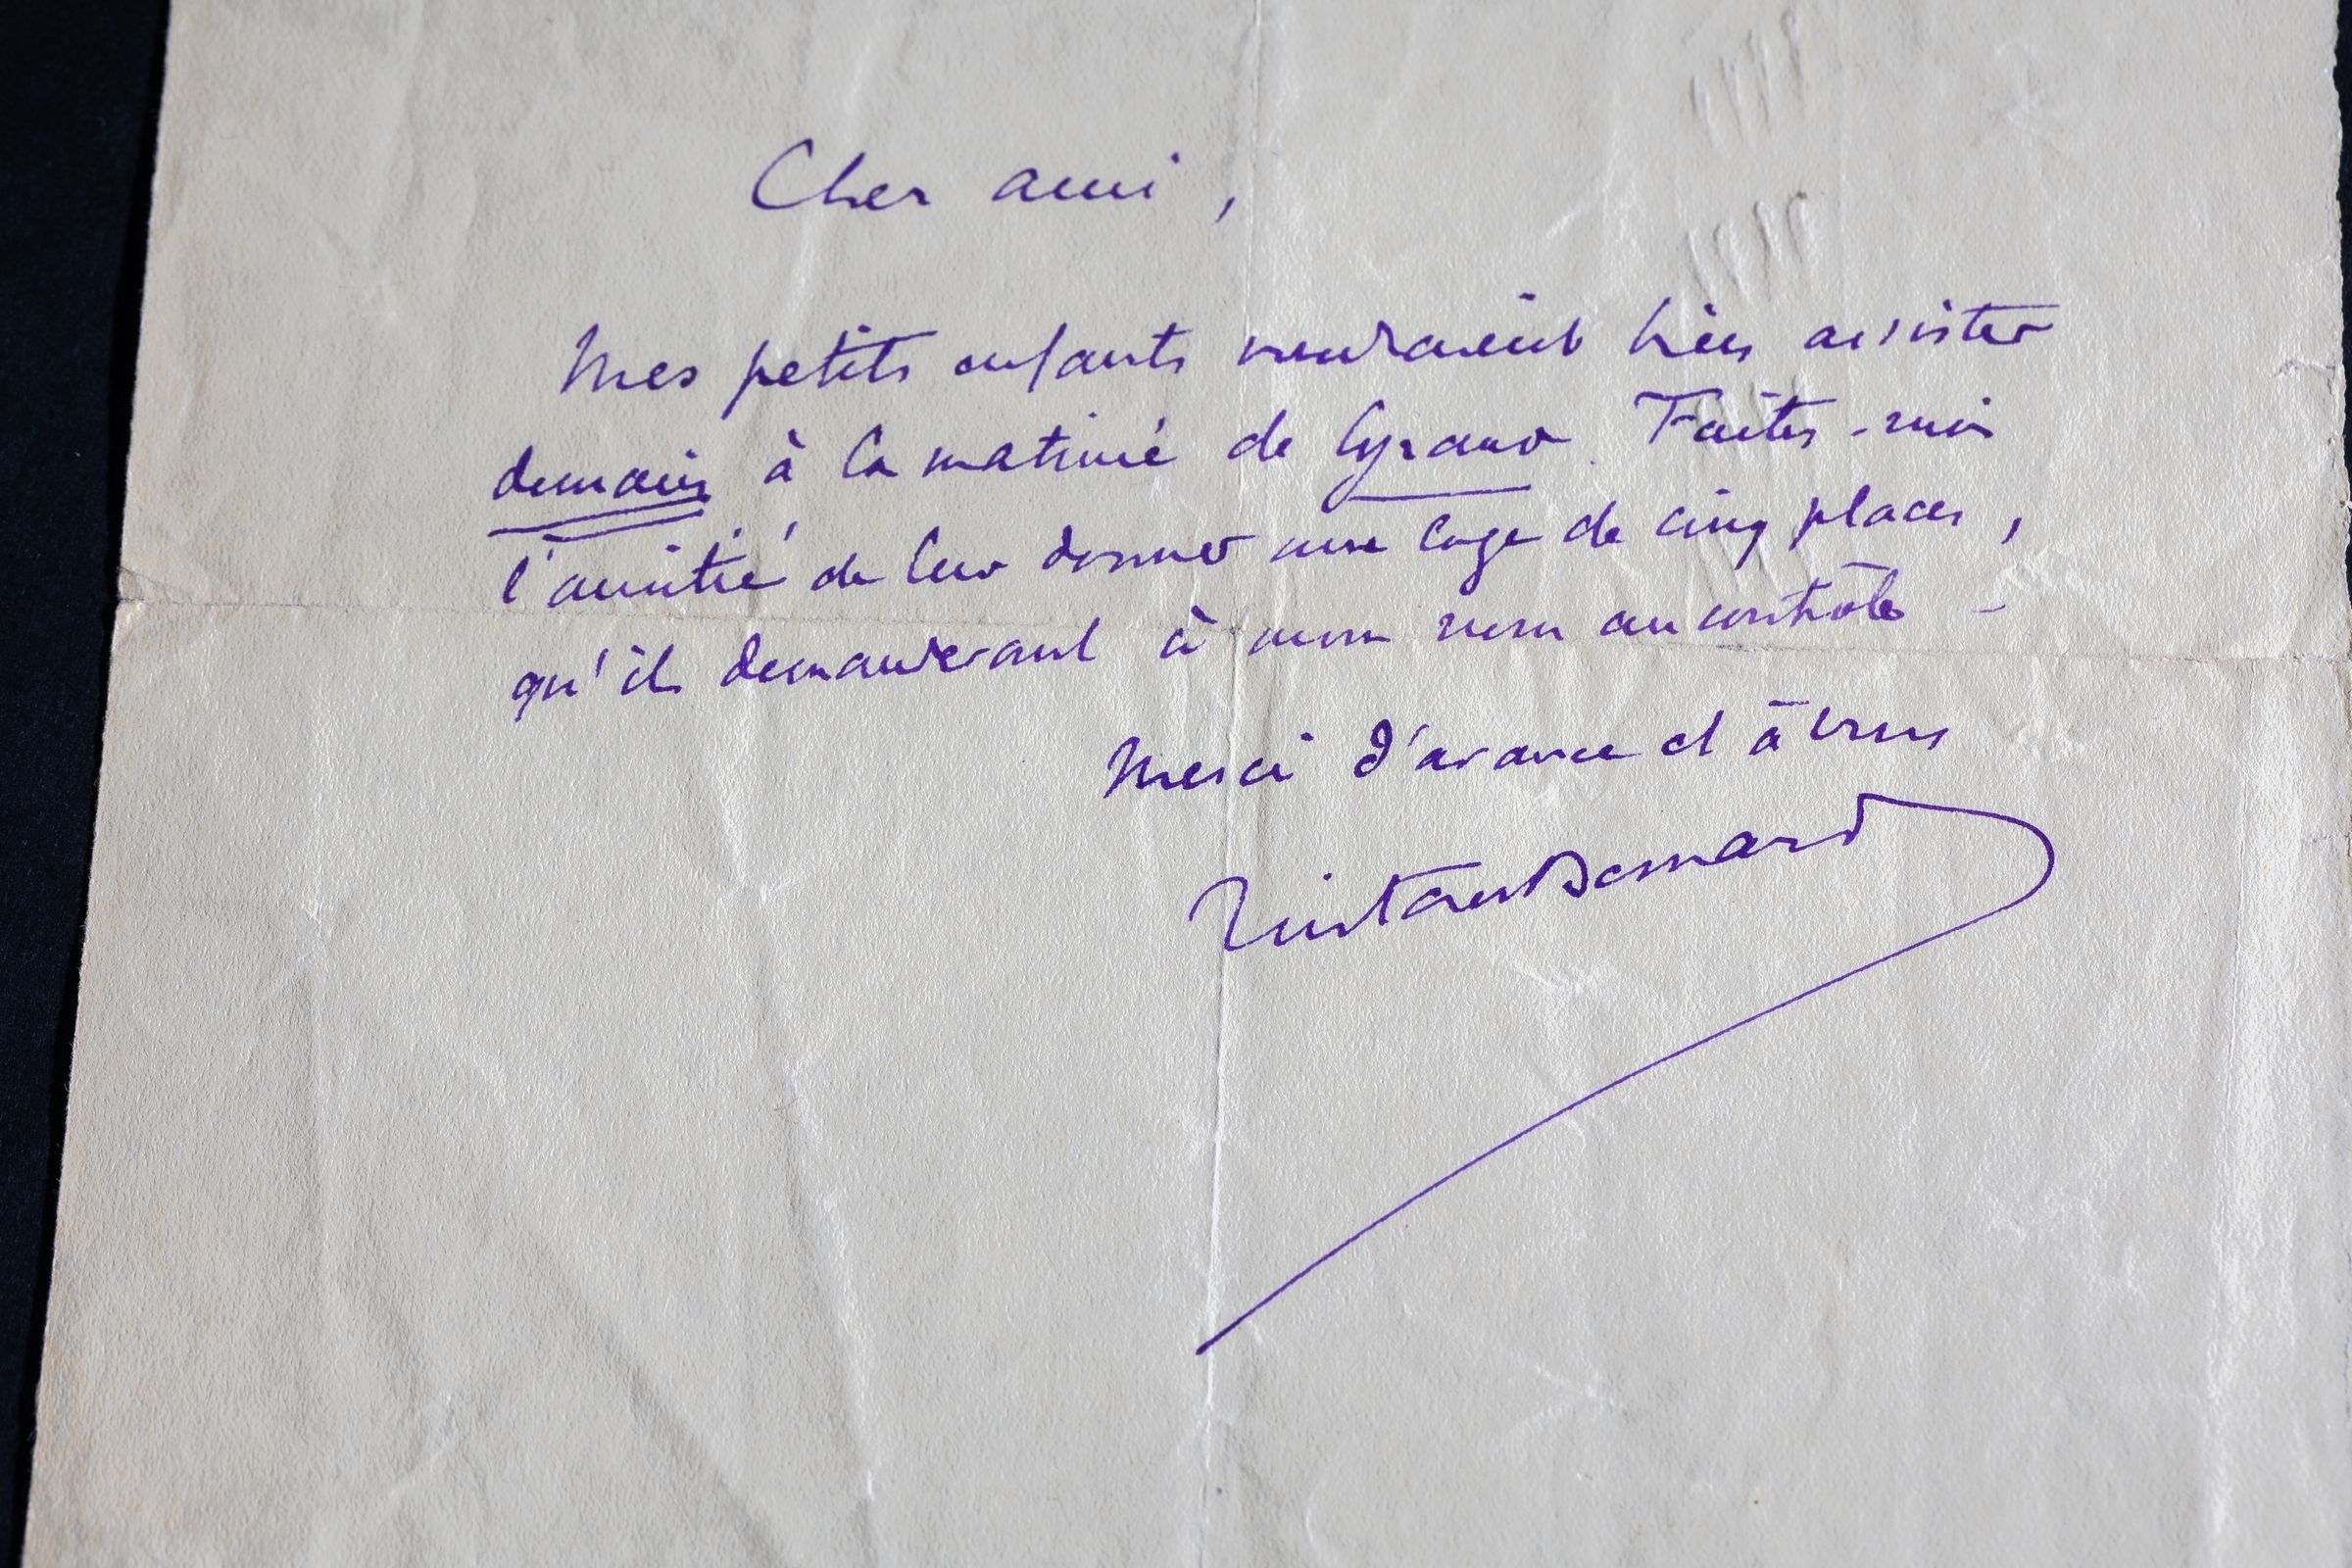 Cher ami,
Mes petits enfants voudraient bien assister
demain à la matinée de Cyrano. Faites-moi
l'amitié de leur donner une loge de cinq places,
qu'ils demanderont à mon nom au contrôle -
Merci d'avance et à vous
Tristan Bernard